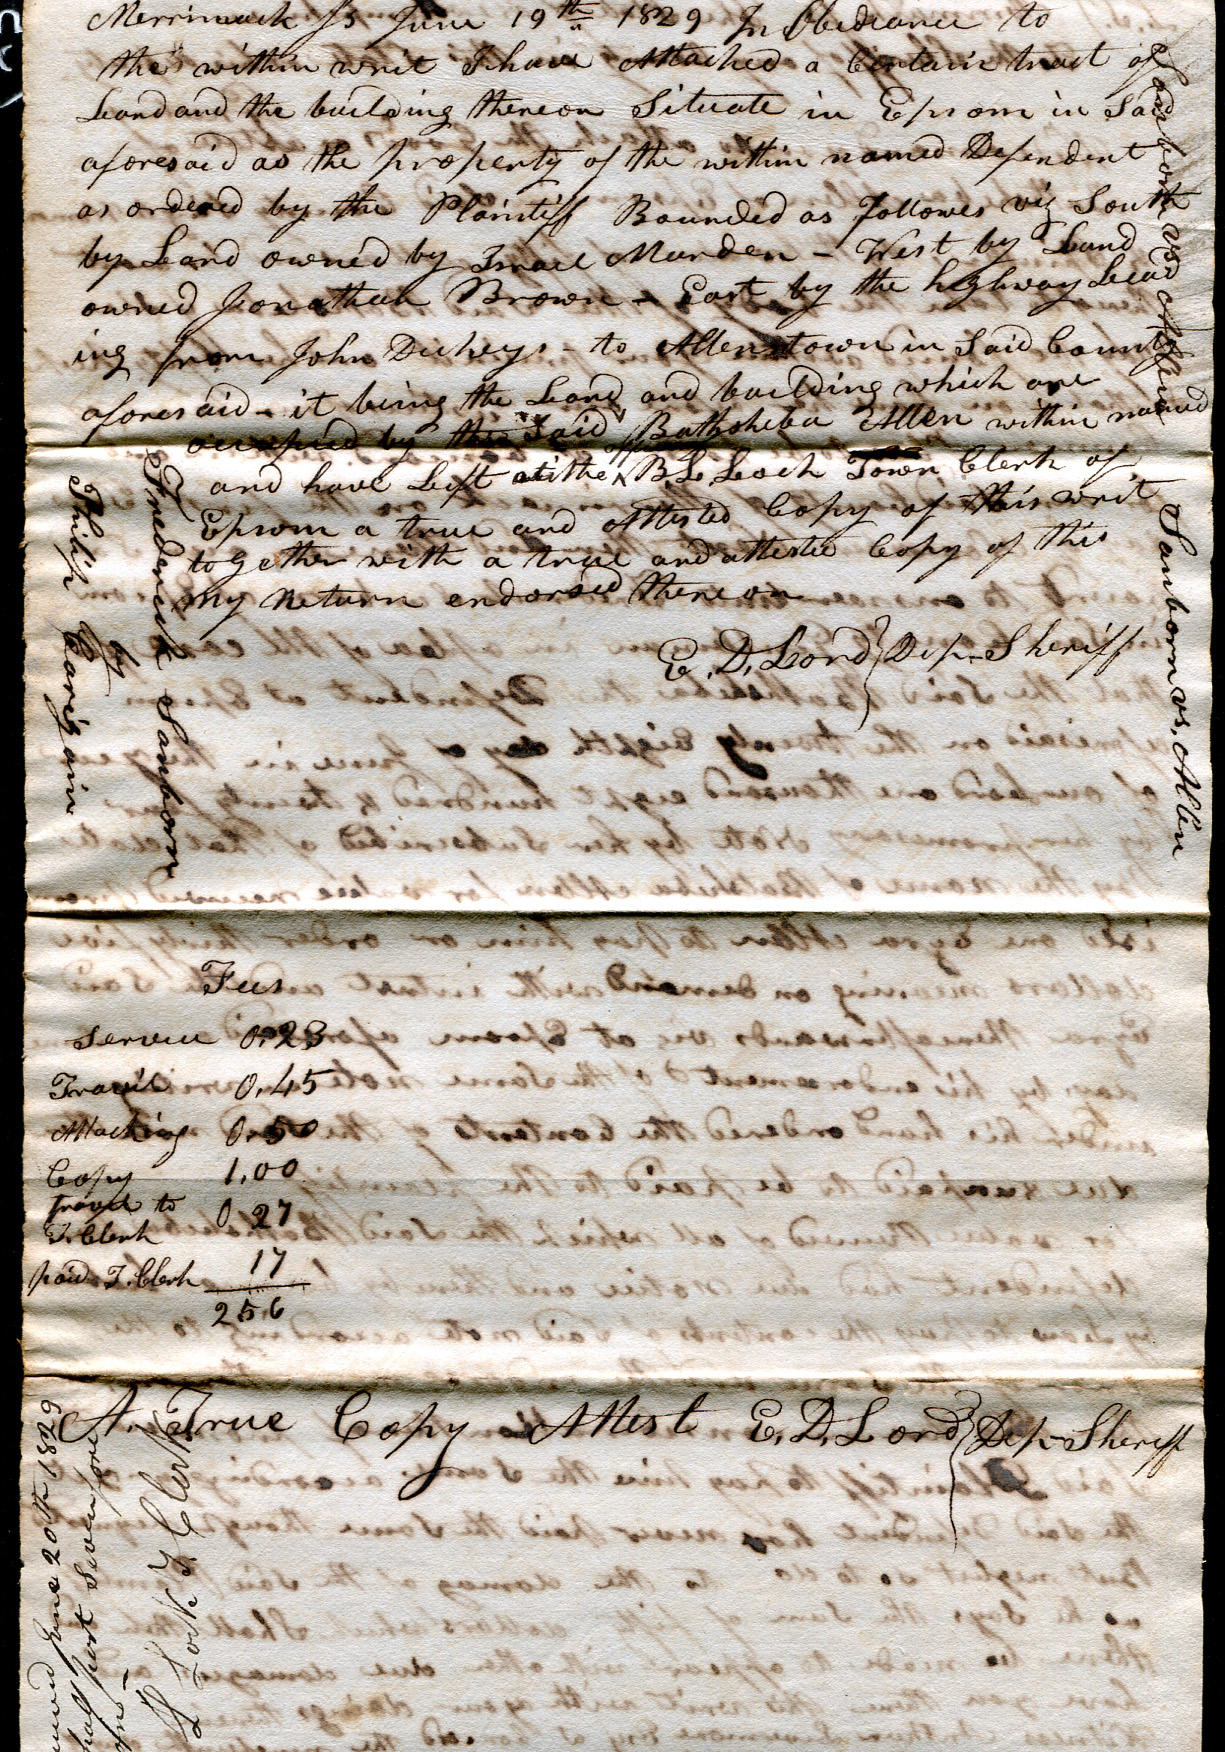 Merrimack Ss June 19th 1829 In Obediance to
the within writ I have Attached a Certain tract of
Land and the building thereon Situate in Epsom in Said
aforesaid as the property of the within named Defendent
as ordered by the Plaintiff Bounded as Followes viz South
by Land owned by Israel Marden - West by Land
owned Jonathan Brown - East by the highway Lead
ing from John Dickeys - to Allenstown in Said County
aforesaid - it being the Land and building which are
occupied by the Said Bathsheba Allen within named
and have Left at the office B. L. Lock Town Clerk of
Epsom a true and Attested Copy of this writ
together with a true and attested Copy of this
my Return endorsed thereon
E. D. Lord } Dep- Sheriff
Sanborn vs Allen
Sanborn vs. Allen
Frederick Sanborn
by
Philip Carigain
Fees
Service 0.23
Travil 0.45
Attaching 0.50
Copy 1.00
travel to
T. Clerk 0 27
paid T. Clerk 17
256
A. True Copy Attest E. D. Lord } Dep- Sheriff
June 20th 1829
half past Seven
Lock T Clerk